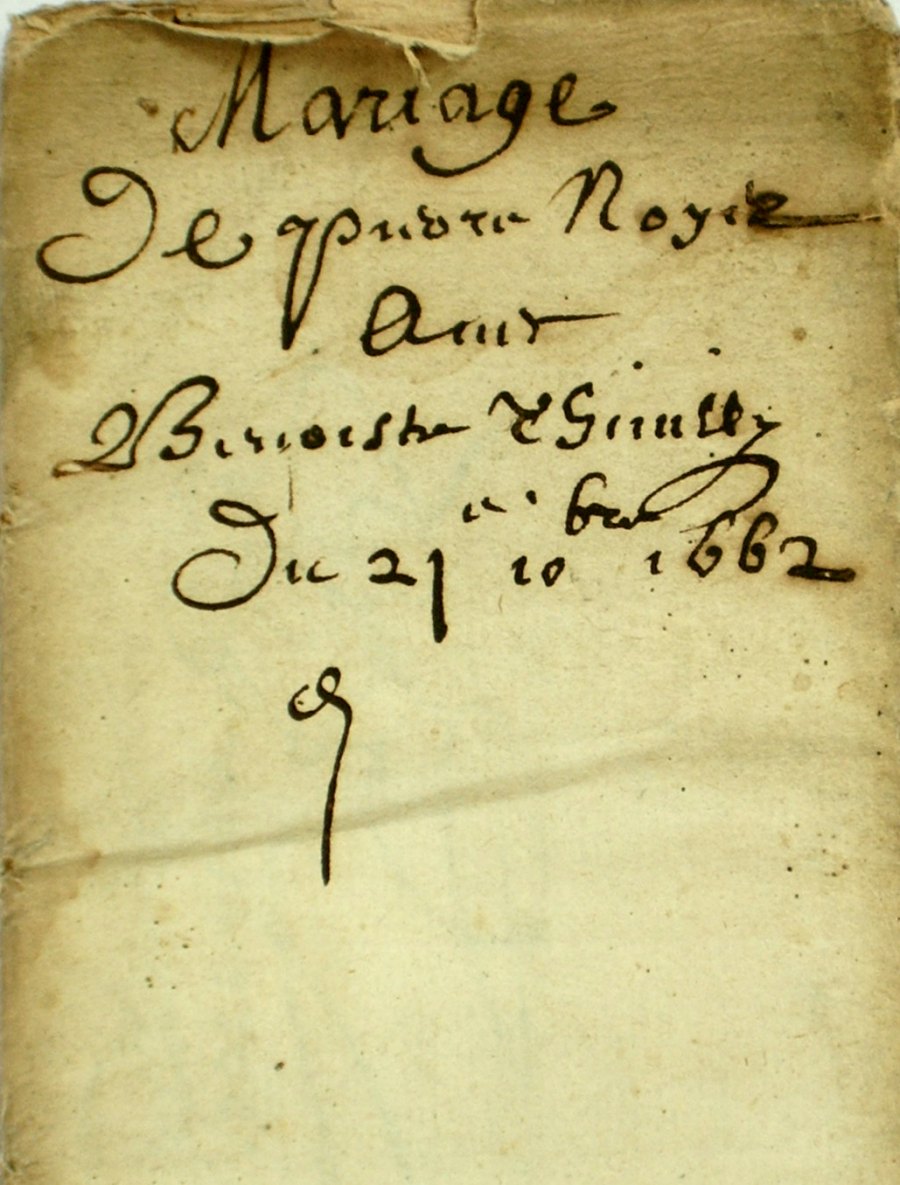 Mariage
De pierre Noyer
Avec
Benoiste
Du 21e 10bre 1662